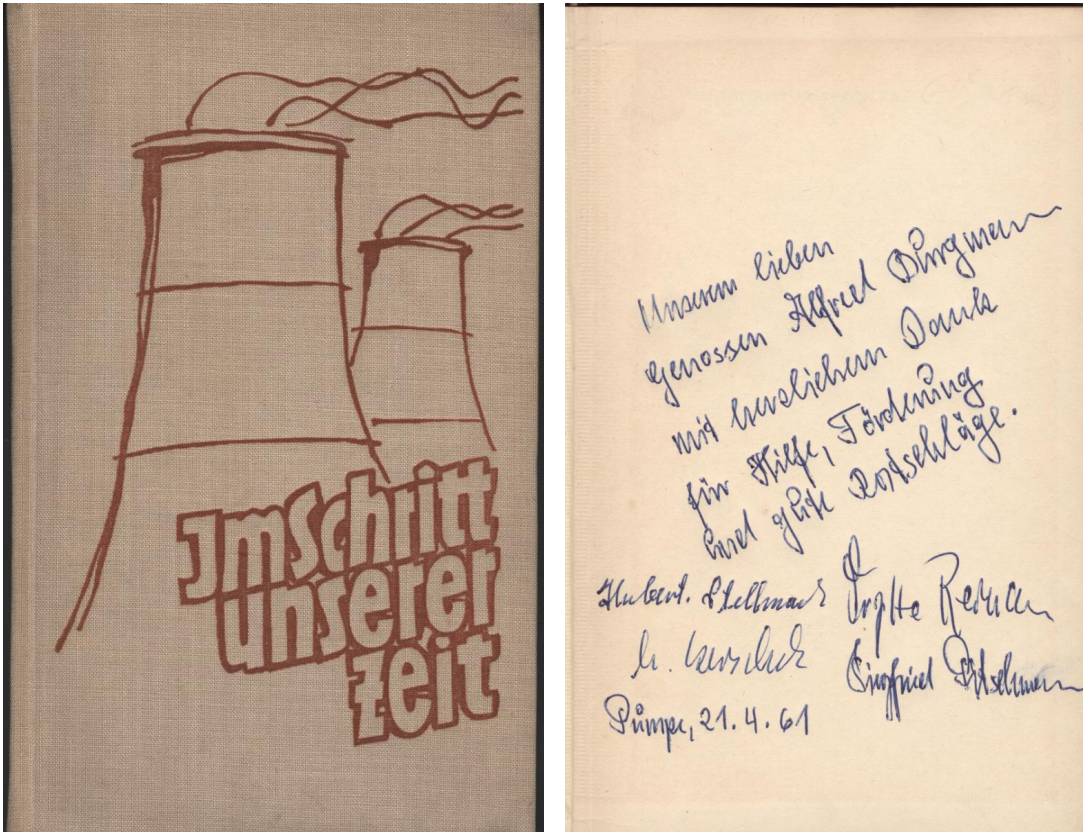 Im Schritt
unserer
zeit
Unserem lieben
Genossen Alfred Burgmann
mit herzlichem Dank
für Hilfe, Förderung
und gute Ratschläge.
Hubert. Stellmach Brigitte Reimann
Siegfried Pitschmann
Pumpe, 21.4.61